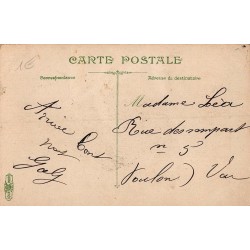 1€
CARTE POSTALE
Correspondance
Adresse du destinataire
Madame Léa
Rue des rempart
n 5
Toulon) Var
Amitié Cent